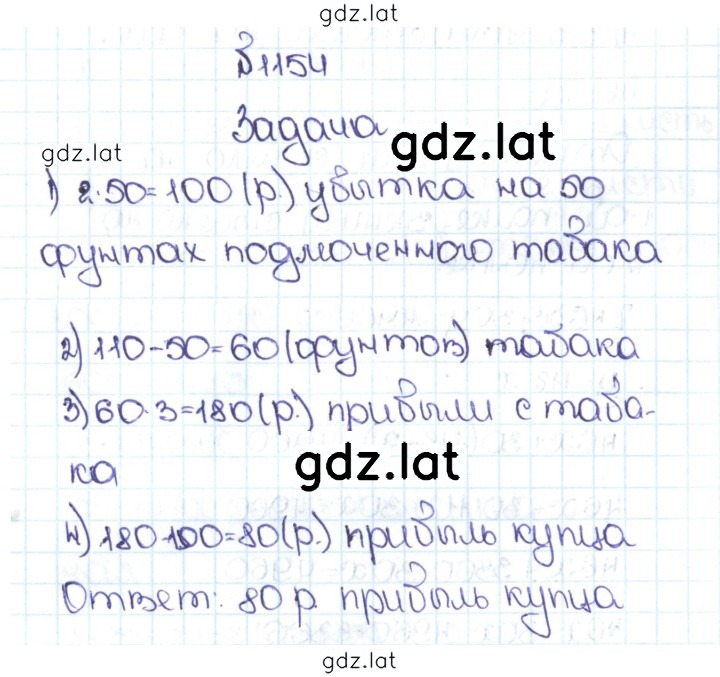 gdz.lat
№1154
Задача
gdz.lat
gdz.lat
1) 2·50=100(р.) убытка на 50
фунтах подмоченного табака
2) 110-50=60(фунтов) табака
3) 60·3=180(р.) прибыли с таба-
ка
gdz.lat
4) 180-100=80(р.) прибыль купца
Ответ: 80 р. прибыль купца
gdz.lat